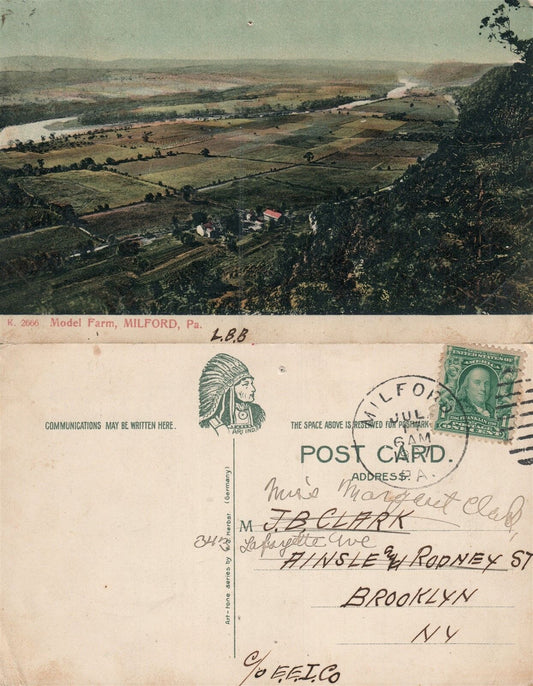 K. 2666 Model Farm, MILFORD, Pa.
L.B.B
COMMUNICATIONS MAY BE WRITTEN HERE.
ART IND.
THE SPACE ABOVE IS RESERVED FOR POSTMARK
POST CARD.
ADDRESS.
MILFORD
JUL
6AM
PA.
UNITED STATES OF AMERICA
Miss Margaret Clark,
M J.B. CLARK
343 Lafayette Ave
AINSLE and RODNEY ST
BROOKLYN
NY
C/O E.E.I.Co
Art-tone series by (Germany)